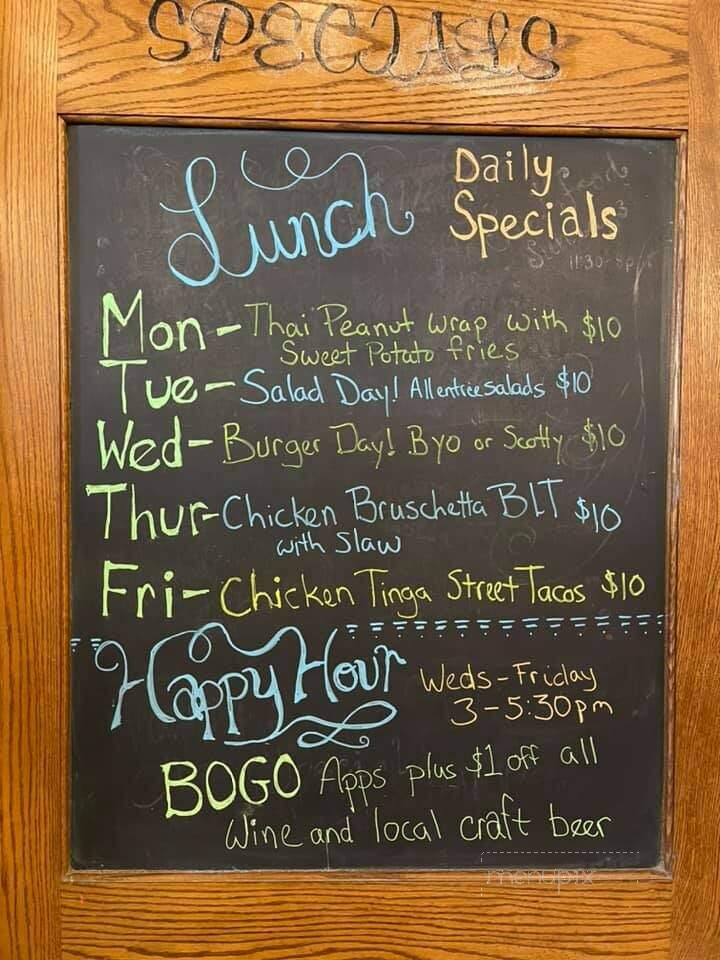 SPECIALS
Lunch
Daily
Specials
11:30-8p
Mon - Thai Peanut wrap with $10
Sweet Potato fries
Tue - Salad Day! All entree salads $10
Wed - Burger Day! Byo or Scotty $10
Thur - Chicken Bruschetta BLT $10
with Slaw
Fri - Chicken Tinga Street Tacos $10
Happy Hour
Weds - Friday
3-5:30pm
BOGO Apps plus $1 off all
Wine and local craft beer
menupix